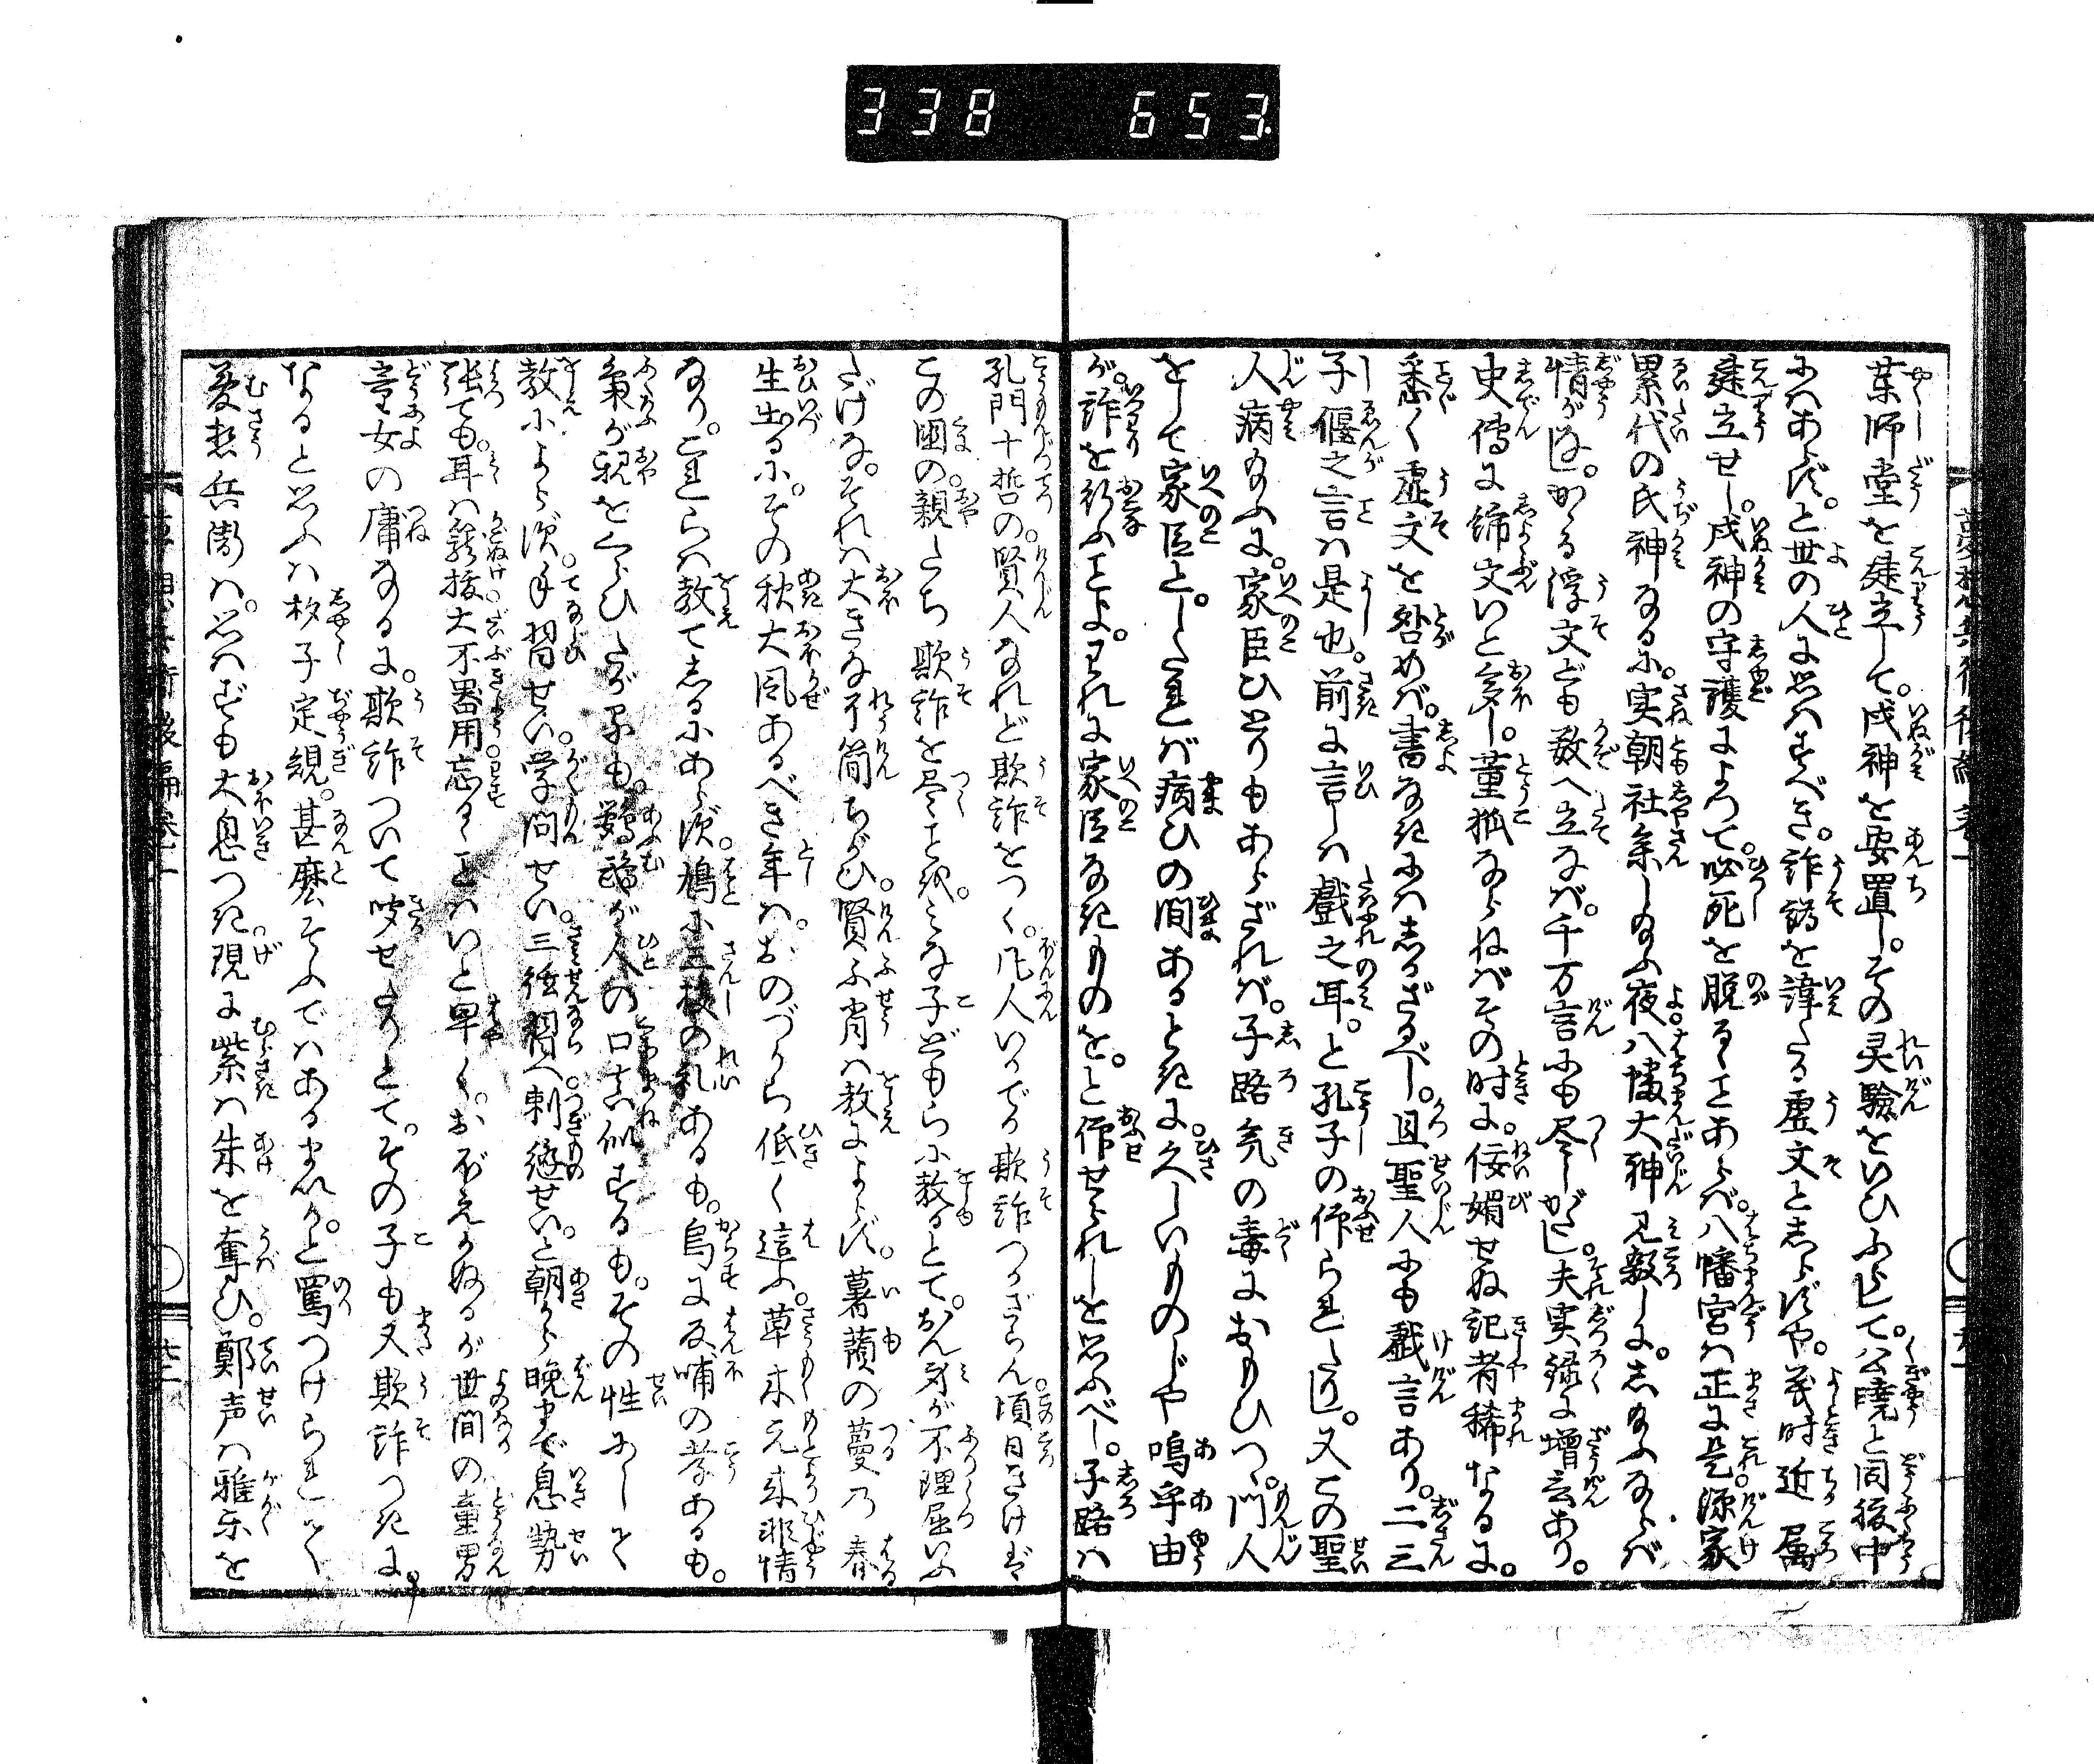 338 653
葉師堂を建立して。戌神を安置し。その灵驗をいひふらして。公暁と同腹中
にハあらず。と世の人に思ハすべき。詐謟を諱たる虚文としらずや。義時近属
建立せし。戌神の守護によつて。必死を脱るゝことあらバ。八幡宮ハ正に是源家
累代の氏神なるに。実朝社参しなふ夜八幡大神見殺しに。しなふならバ
情がなし。かゝる浮文ども数へ立なバ。千万言にも尽しがたし。夫実録に増言あり。
史傳に飾文いと多し。董狐ならねバその时に。佞媚せぬ記者稀なるに。
悉く虚文を咎めバ。書なきにハしかざるべし。且聖人にも戯言あり。二三
子偃之言ハ是也。前に言しハ戲之耳。と孔子の仰られたりし。又この聖
人病なふに。家臣ひとりもあらざれバ。子路気の毒におもひつ。門人
をして家臣とし。たれバ病ひの間あるときに。久しいものじや嗚乎由
が。詐を行ふことよ。われに家臣なきものを。と仰せられしを思ふべし。子路ハ
孔門十哲の。賢人なれど欺詐をつく。凡人いかでか欺詐つかざらん。頃日きけば
この国の。親たち欺詐を尽こと㦲。みな子どもらに教るとて。おん身が不理屈いふ
だけな。それハ大きな了簡ちがひ。賢不肖ハ教によらず。薯蕷の蔓乃春
生出るに。その秋大風あるべき年ハ。おのづから低く這ふ。草木元来非情
なり。これらハ教てしるにあらず。鳩に三枝の礼あるも。烏に反哺の孝あるも。
梟が親をくらひたがるも。鸚鵡が人の口真似するも。その性にして
教によらず。手習せい学問せい。三絃習へ刺繍せい。と朝から晩まで息勢
張ても。耳ハ笊抜大不器用忘るゝことハいと早く。おぼえかぬるが世間の童男
童女の庸なるに。欺詐ついて咬せたりとて。その子も又欺詐つきに。
なると思ふハ杓子定規。甚麽そふでハあるまいか。と罵つけられて
夢想兵衛ハ。思ハずも大息つき。現に紫ハ朱を奪ひ。鄭声ハ雅乐を